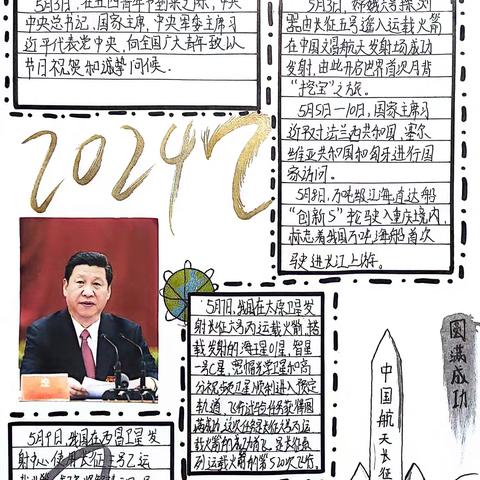 5月3日,在五四青年节到来之际,中
央中央总书记,国家主席,中央军委主席习
近平代表党中央,向全国广大青年致以
节日祝贺和诚挚问候.
2024
5月3日,嫦娥六号探测
器由长征五号遥八运载火箭
在中国文昌航天发射场成功
发射,由此开启世界首次月背
“挖宝”之旅.
5月5日—10日,国家主席习
近平对法兰西共和国,塞尔
维亚共和国和匈牙利进行国
家访问.
5月8日,万吨级江海直达船
“创新5”轮驶入重庆境内,
标志着我国万吨海船首次
驶进长江上游.
5月7日,我国在太原卫星发
射长征六号丙运载火箭,搭
载发射的海王星01星,智星
一号C星,宽幅光学卫星和高
分视频卫星顺利进入预定
轨道,飞行试验任务获得圆
满成功.这次任务是长征六号丙运
载火箭的首飞,是长征系
列运载火箭的第520次飞行.
圆满成功
中国航天长征
5月9日,我国在西昌卫星发
射中心使用长征三号乙运